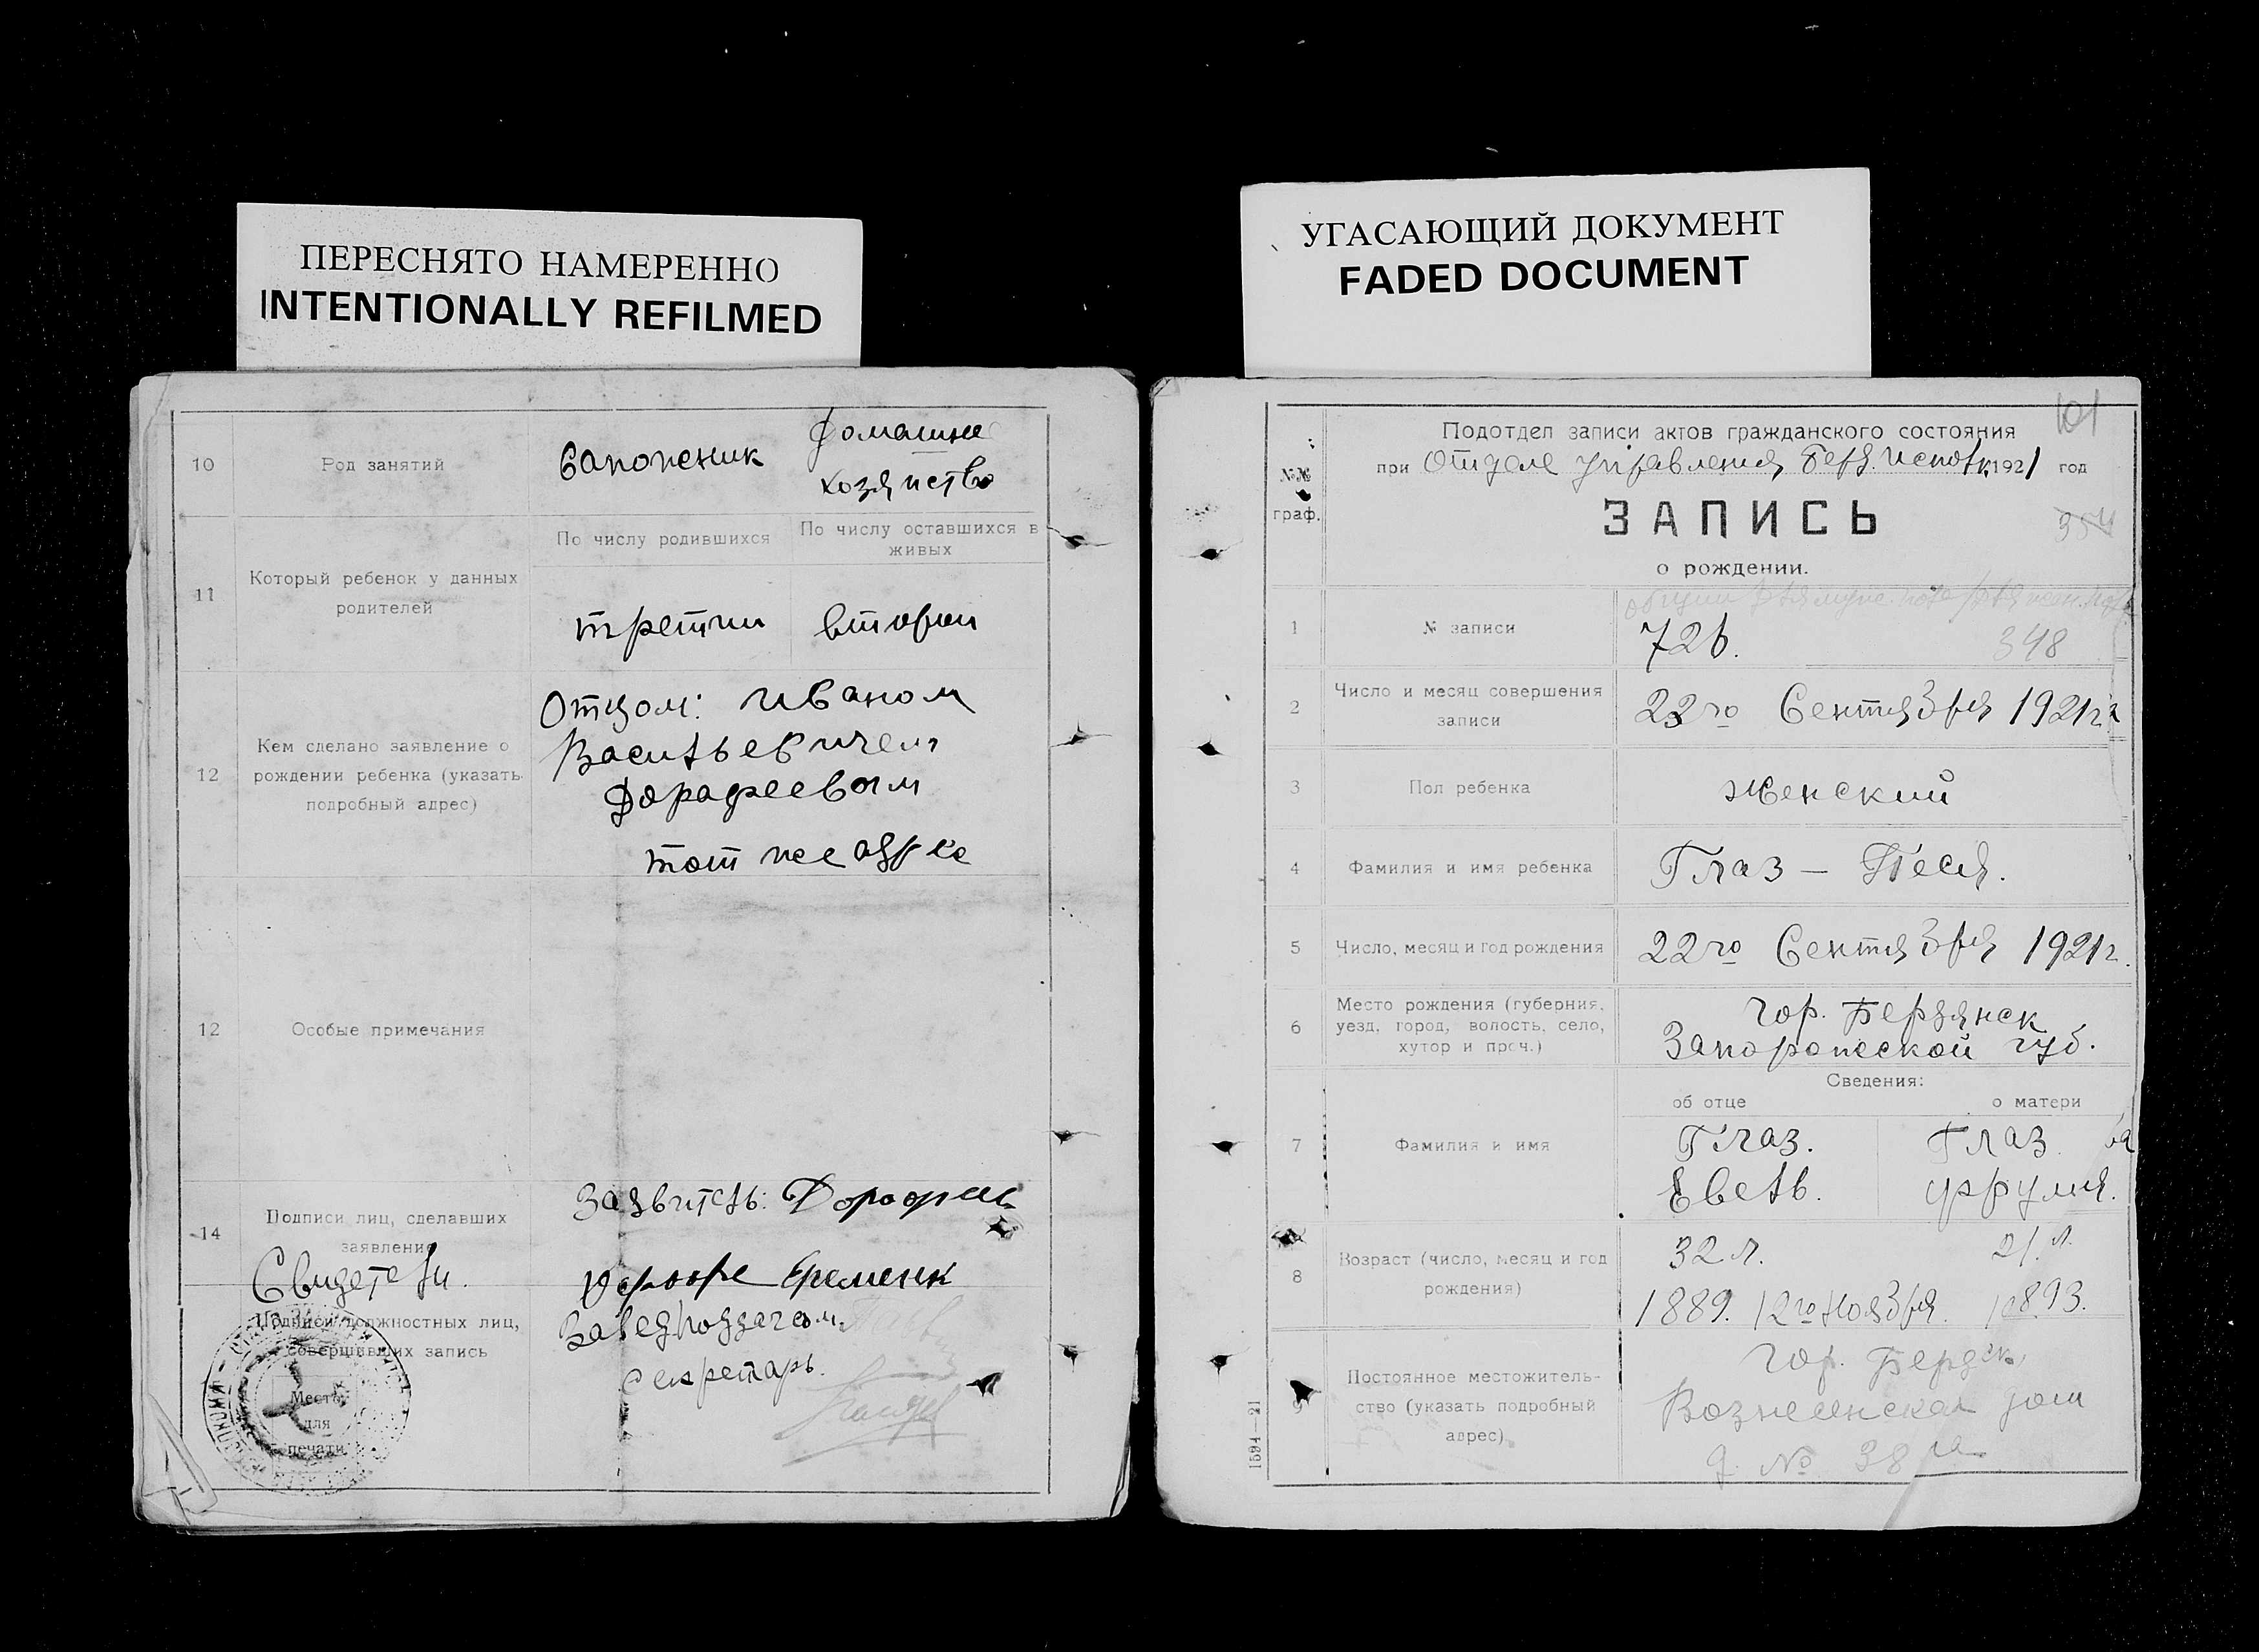 ПЕРЕСНЯТО НАМЕРЕННО
INTENTIONALLY REFILMED
10
Род занятий
Сапожник
Домашнее
хозяйство
11
Который ребенок у данных
родителей
По числу родившихся
По числу оставшихся в
живых
третий
второй
12
Кем сделано заявление о
рождении ребенка (указать
подробный адрес)
Отцом: Иваном
Васильевичем
Дорафеевым
тот же адрес
12
Особые примечания
14
Подписи лиц, сделавших
заявление
Свидетели.
Заявитель: Дорофеев
Еременк
Подписи должностных лиц,
совершивших запись
Место
для
печати
Завед подзагсом
секретарь.
УГАСАЮЩИЙ ДОКУМЕНТ
FADED DOCUMENT
101
№№
граф.
Подотдел записи актов гражданского состояния
при Отделе управления Берд. 1921 год
ЗАПИСЬ
354
о рождении.
1
№ записи
726.
348
2
Число и месяц совершения
записи
22го Сентября 1921г.
3
Пол ребенка
женский
4
Фамилия и имя ребенка
Глаз — Песя.
5
Число, месяц и год рождения
22го Сентября 1921г.
6
Место рождения (губерния,
уезд, город, волость, село,
хутор и проч.)
гор. Бердянск
Запорожской губ.
Сведения:
об отце
о матери
7
Фамилия и имя
Глаз.
Евель.
Глаз
Фрума.
8
Возраст (число, месяц и год
рождения)
32 л.
1889. 12го Ноября.
21 л.
1893.
9
Постоянное местожитель-
ство (указать подробный
адрес)
гор. Бердск,
Вознесенская дом
д. № 38
1594—21